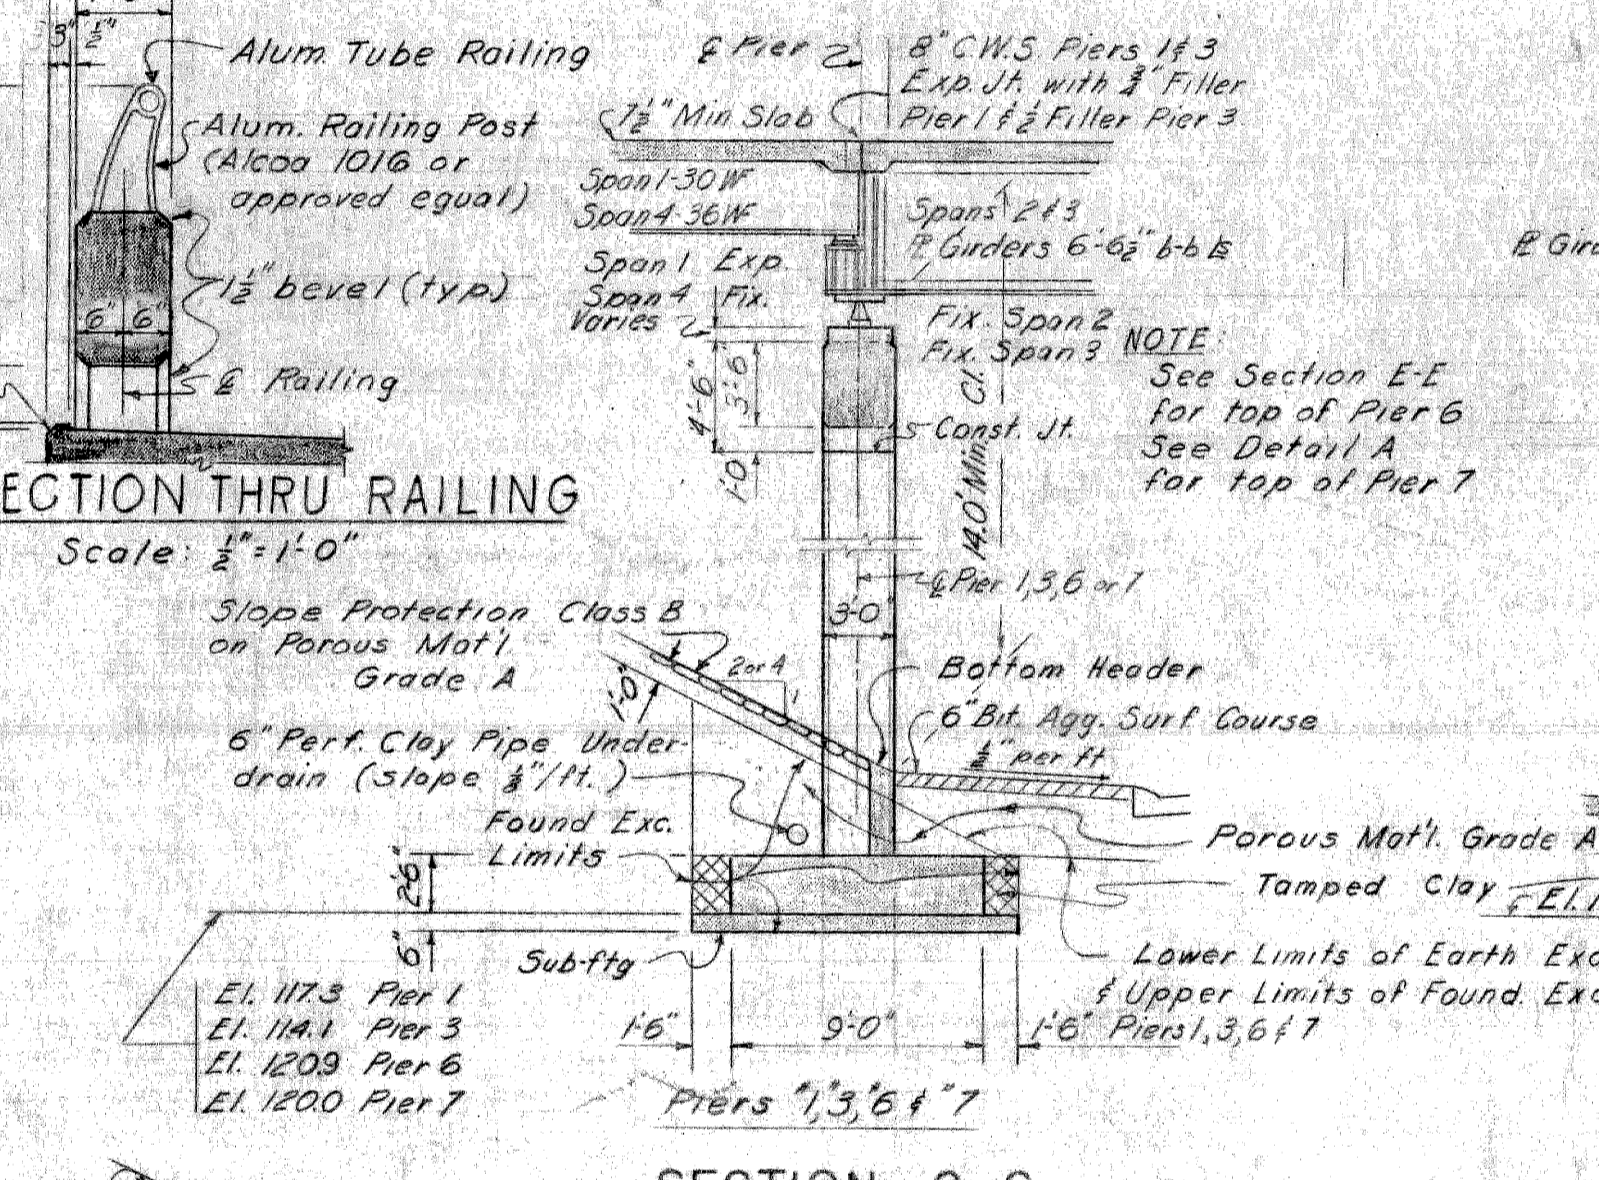 3" ½"
Alum. Tube Railing
Alum. Railing Post
(Alcoa 1016 or
approved equal)
1½" bevel (typ.)
6" 6"
℄ Railing
ECTION THRU RAILING
Scale: ½" = 1'-0"
℄ Pier
8" C.W.S. Piers 1 & 3
Exp. Jt. with ¾" Filler
Pier 1 & ½ Filler Pier 3
7½" Min Slab
Span 1-30 WF
Span 4-36 WF
Spans 2 & 3
℔ Girders 6'-6½" b-b ⅊s
Span 1 Exp.
Span 4 Fix.
Varies
Fix. Span 2
Fix. Span 3
4'-6"
3'-6"
1'-0
Const. Jt.
14.0' Min. Cl.
NOTE:
See Section E-E
for top of Pier 6
See Detail A
for top of Pier 7
℄ Pier 1,3,6 or 7
3'-0"
Slope Protection Class B
on Porous Mat'l.
Grade A
1'-0"
2 or 4
1
Bottom Header
6" Bit. Agg. Surf Course
per ft
6" Perf. Clay Pipe Under-
drain (slope ⅛"/ft.)
Found Exc.
Limits
Porous Mat'l. Grade A
Tamped Clay
El. 1
2'-6"
6"
Sub-ftg
Lower Limits of Earth Exc
& Upper Limits of Found. Exc
El. 117.3 Pier 1
El. 114.1 Pier 3
El. 120.9 Pier 6
El. 120.0 Pier 7
1'-6"
9'-0"
1'-6" Piers 1,3,6 & 7
Piers "1,"3,"6 & "7
℔ Gird
SECTION